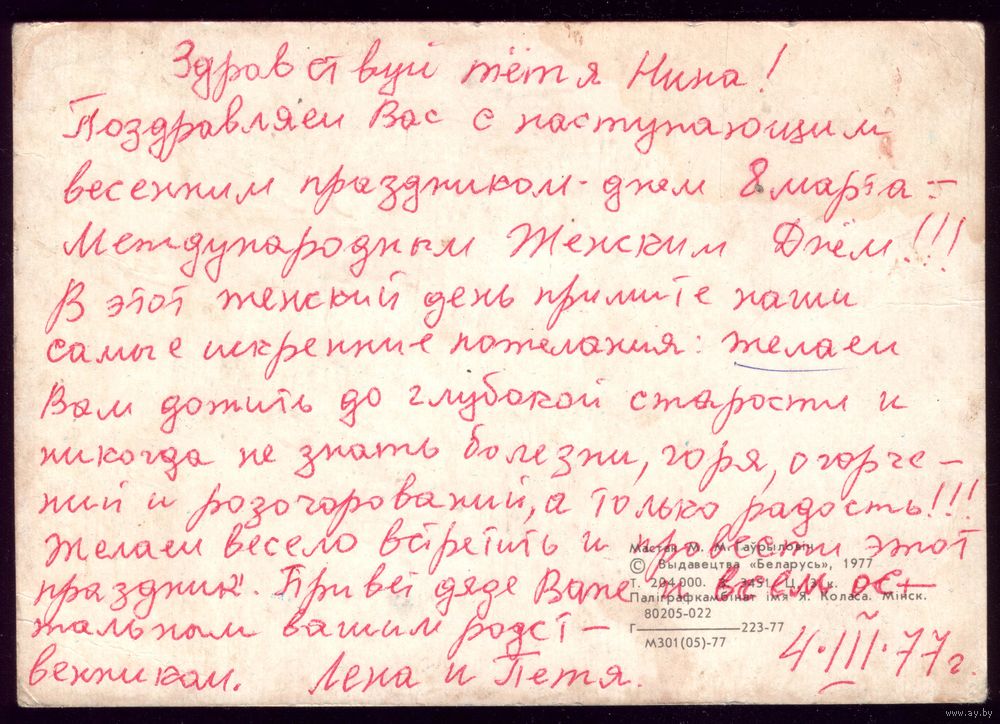 Здравствуй тётя Нина!
Поздравляем Вас с наступающим
весенним праздником - днем 8 марта -
Международным Женским Днём!!!
В этот женский день примите наши
самые искренние пожелания: желаем
Вам дожить до глубокой старости и
никогда не знать болезни, горя, огорче-
ний и розочарований, а только радость!!!
Желаем весело встретить и провести этот
праздник. Привет дяде Ване и всем ос-
тальным вашим родст-
венникам. Лена и Петя.
4.III.77г.
Мастак М. М. Гаўрыловіч
© Выдавецтва «Беларусь», 1977
Т. 204.000. З. 3451. Ц. 3 к.
Паліграфкамбінат імя Я. Коласа. Мінск.
80205-022
Г————223-77
М301(05)-77
www.ay.by